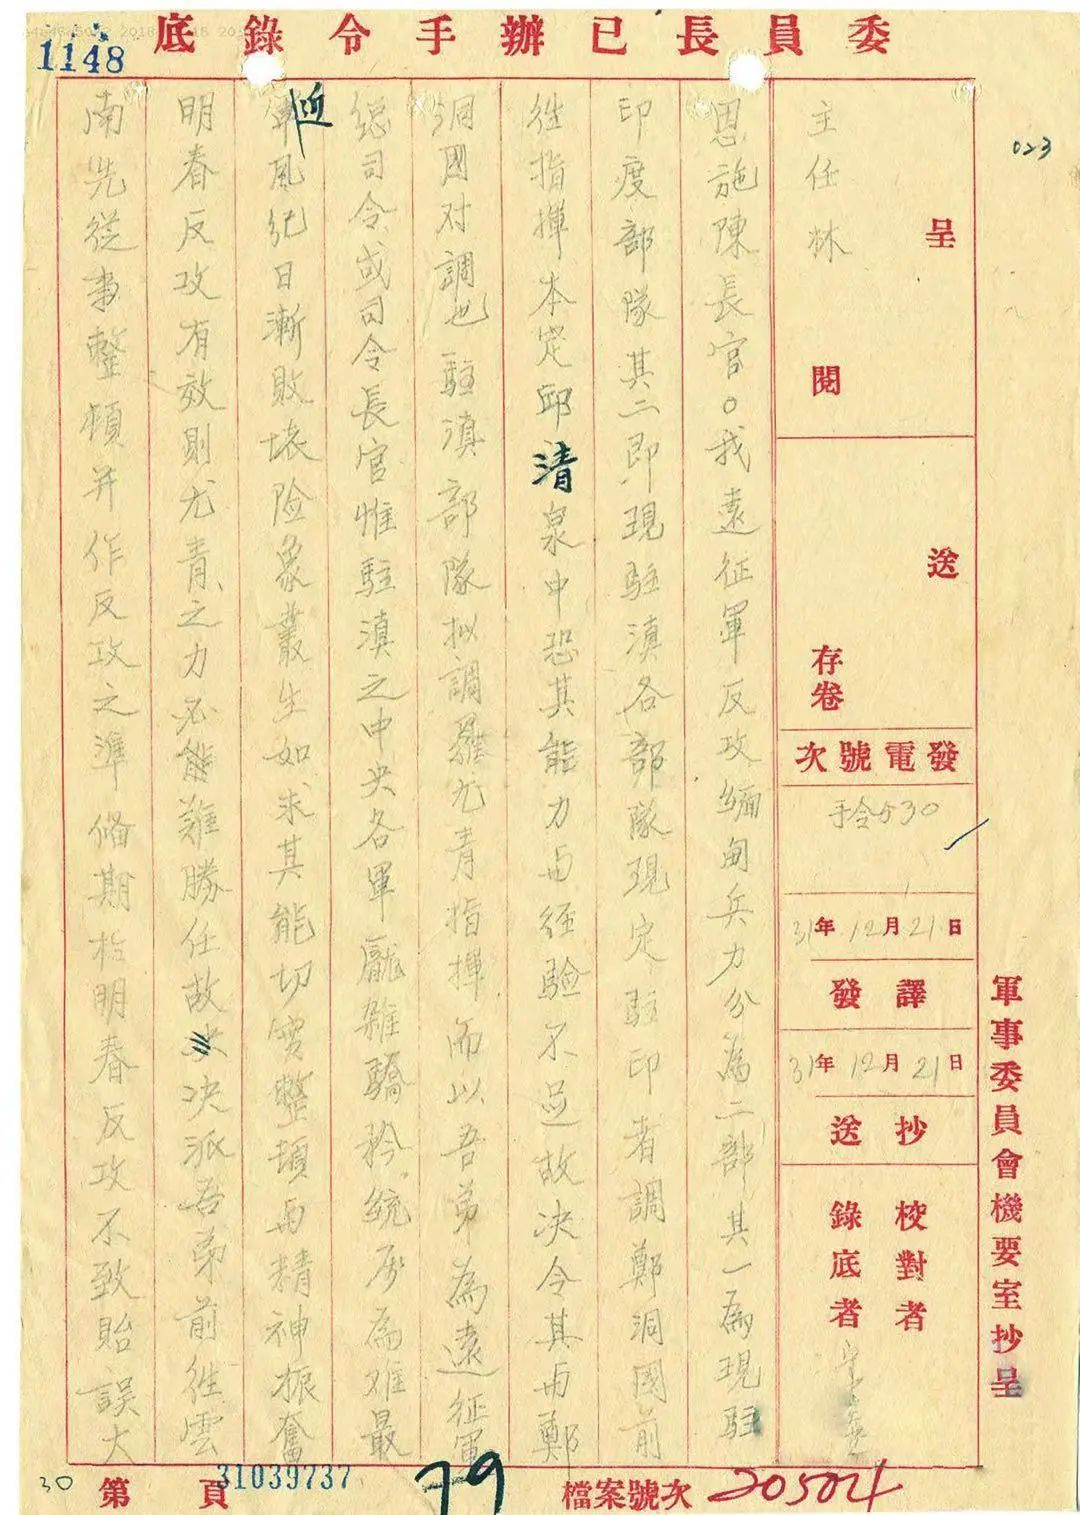 委員長已辦手令錄底
1148
023
呈
閱
主任林
送
存卷
發電號次
手令530
31年12月21日
譯發
31年12月21日
抄送
校對者
錄底者
軍事委員會機要室抄呈
恩施陳長官。我遠征軍反攻緬甸兵力分為二部其一為現駐
印度部隊其二即現駐滇各部隊現定駐印者調鄭洞國前
往指揮本定邱清泉中恐其能力與經驗不足故决令其與鄭
洞國对調也駐滇部隊拟調羅尤青指揮而以吾弟為遠征軍
總司令或司令長官惟駐滇之中央各軍龐雜驕矜統馭為难最
近軍風紀日漸敗壞险象叢生如求其能切實整頓與精神振奮
明春反攻有效則尤青之力必能難勝任故决派吾弟前往雲
南先從事整頓并作反攻之準備期於明春反攻不致貽誤大
30
第 頁
31039737
79
檔案號次
20504